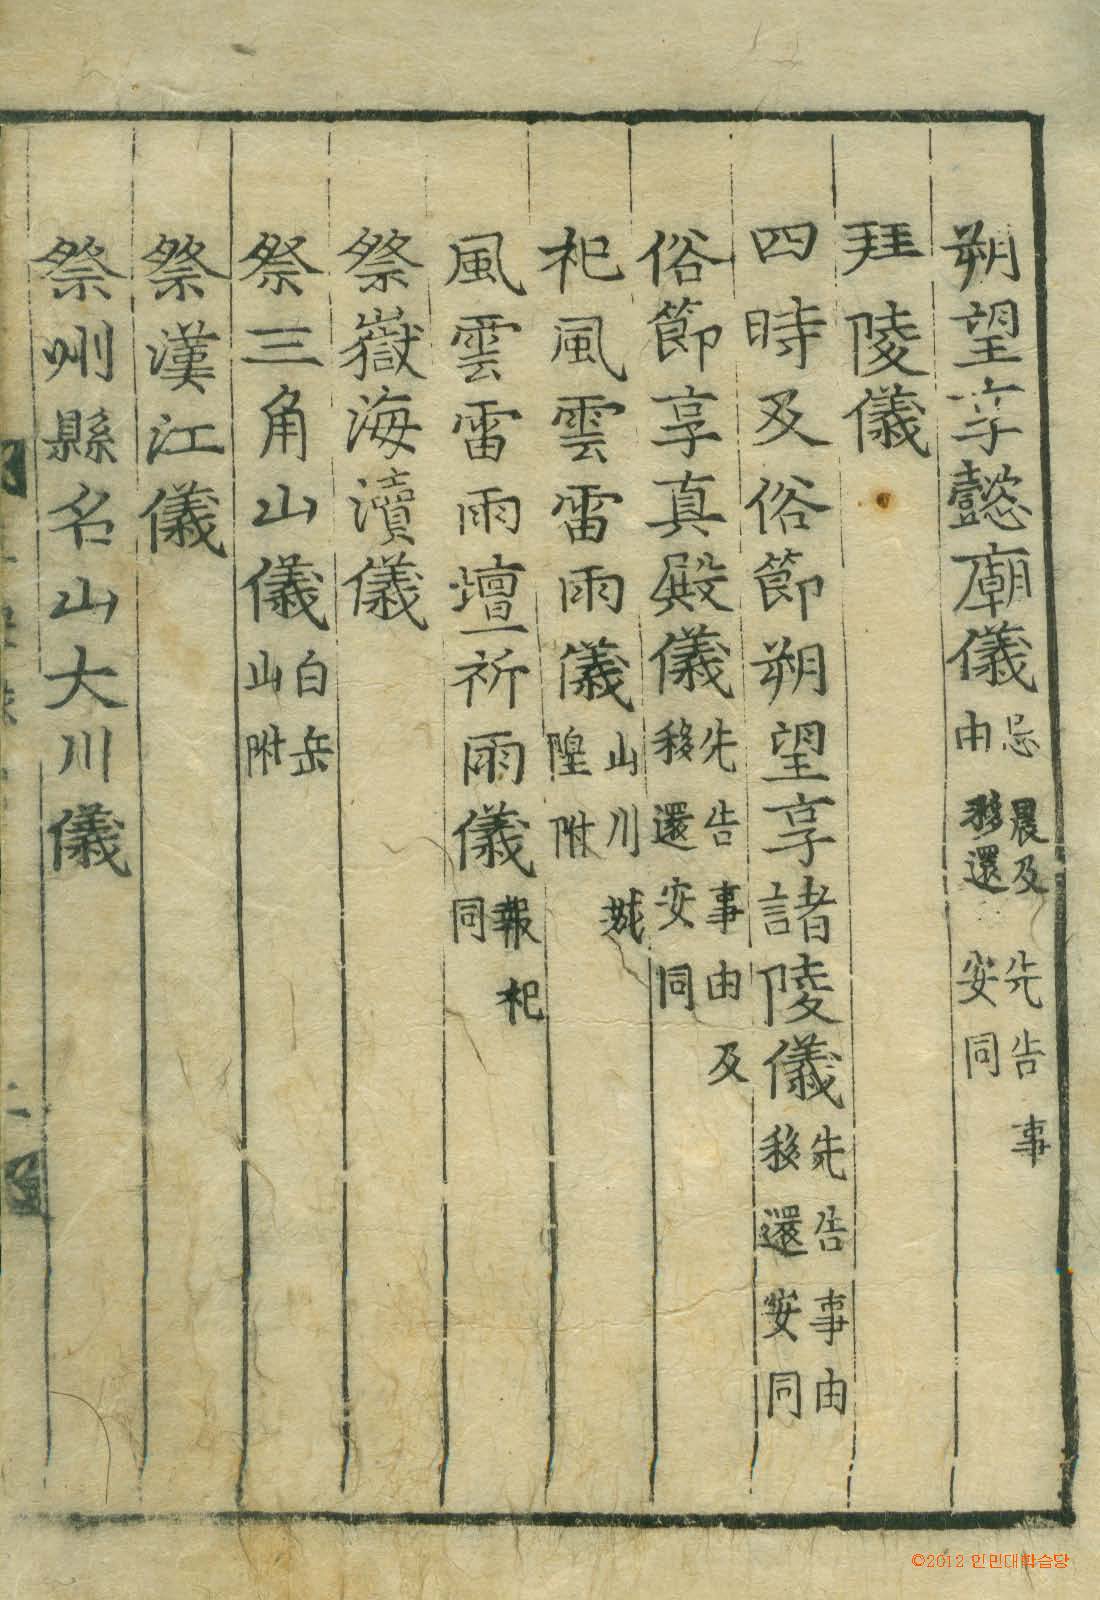 朔望享懿廟儀 忌晨及先告事由移還安同
拜陵儀
四時及俗節朔望享諸陵儀 先告事由移還安同
俗節享真殿儀 先告事由及移還安同
祀風雲雷雨儀 山川城隍附
風雲雷雨壇祈雨儀 報祀同
祭嶽海瀆儀
祭三角山儀 白岳山附
祭漢江儀
祭州縣名山大川儀
©2012 인민대학습당